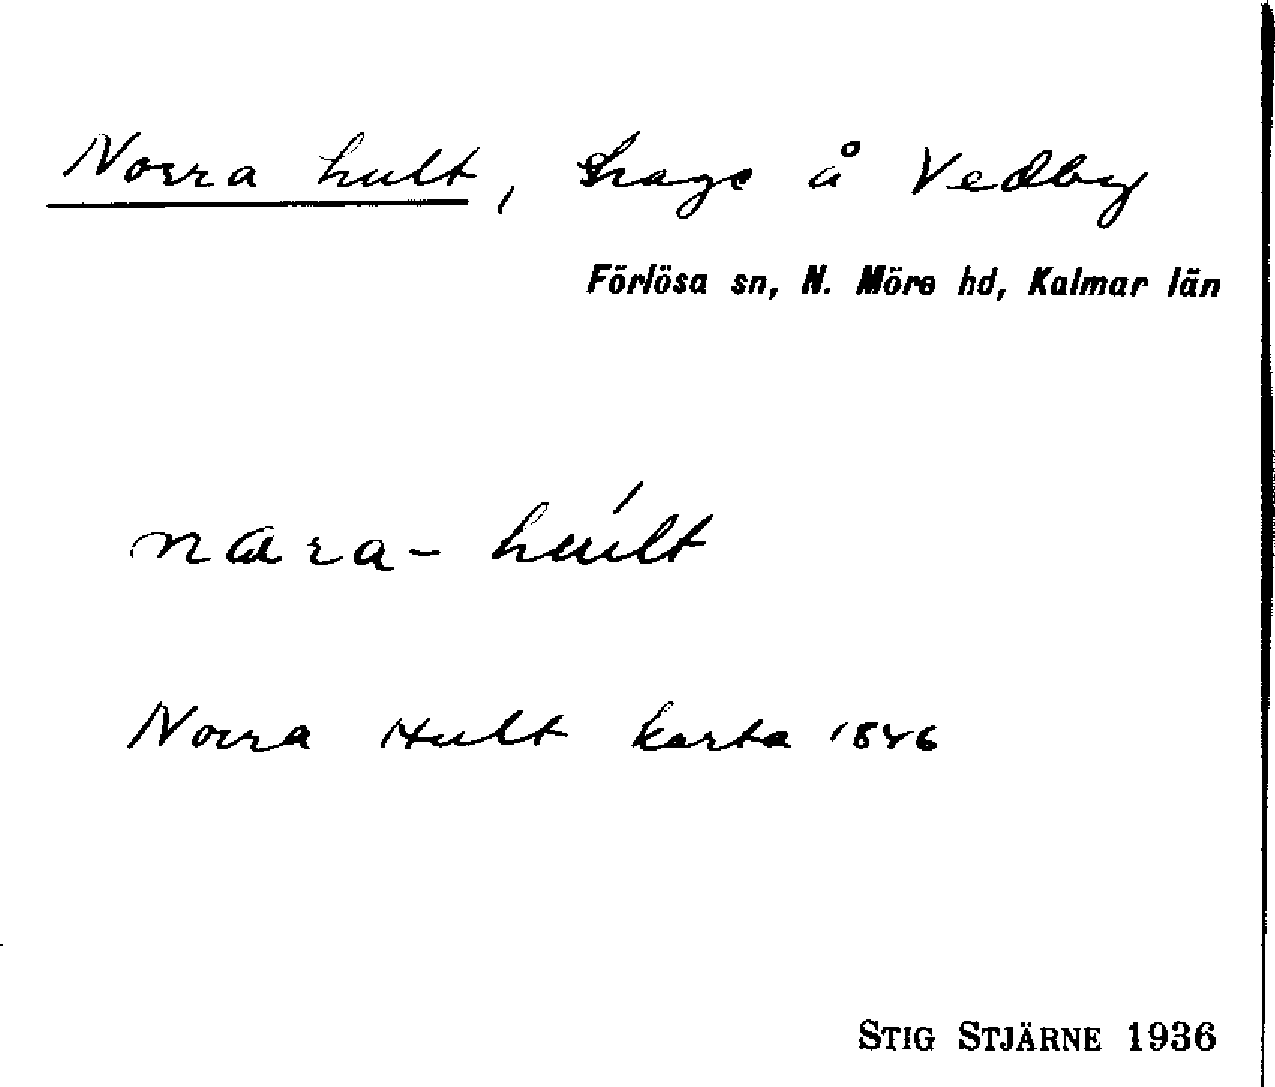 Norra hult, hage å Vedby
Förlösa sn, N. Möre hd, Kalmar län
nara-hult
Norra Hult karta 1846
STIG STJÄRNE 1936